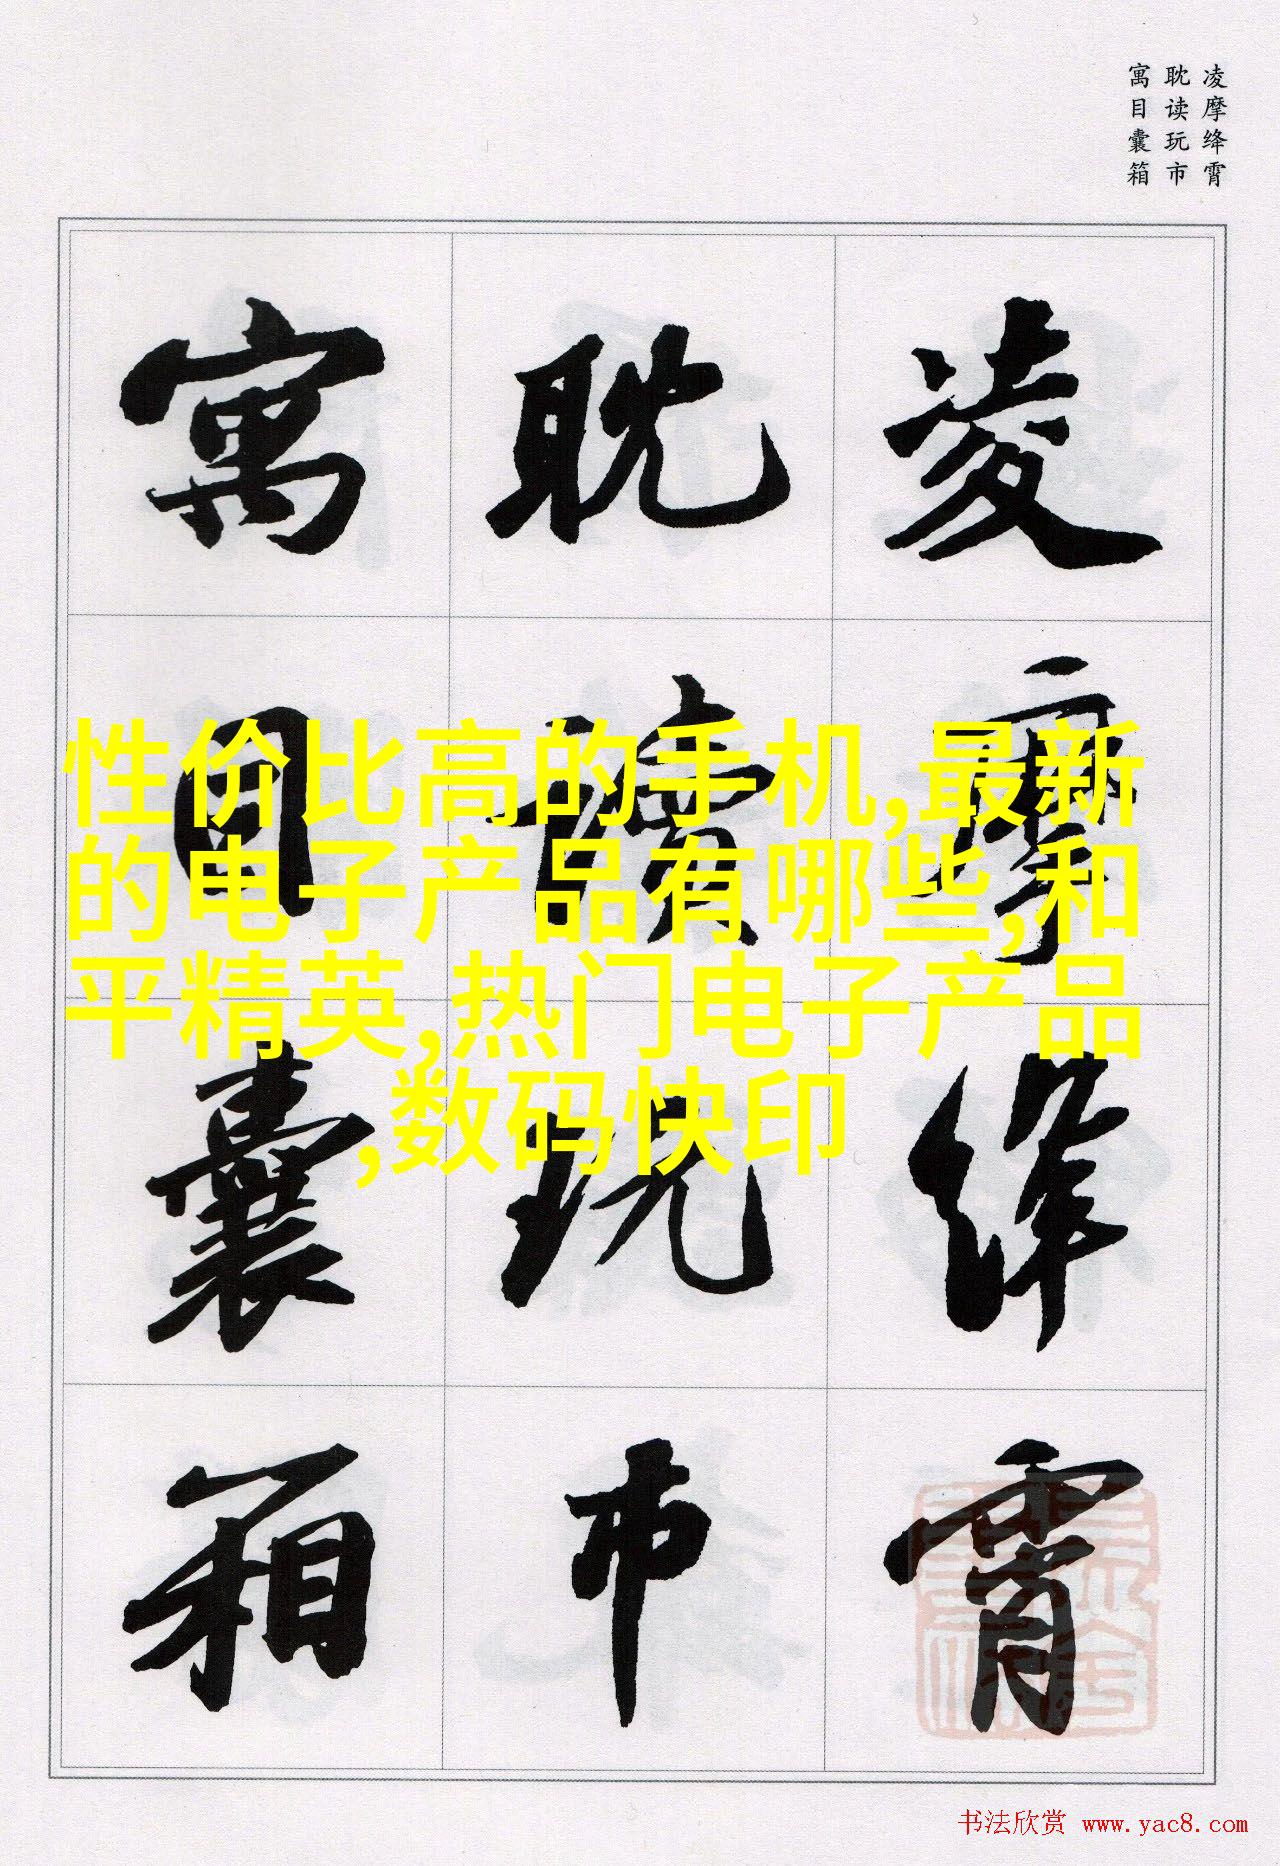 凌摩绛霄
耽读玩市
寓目囊箱
凌摩绛霄
耽讀玩市
寓目囊箱
性价比高的手机,最新
的电子产品有哪些,和
平精英,热门电子产品
,数码快印
书法欣赏 www.yac8.com